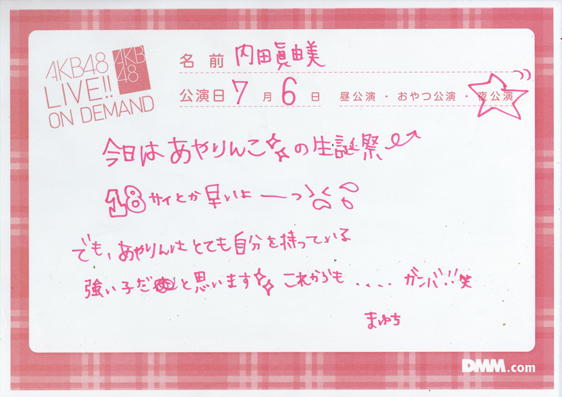 AKB48
LIVE!!
ON DEMAND
AKB
48
名前 内田眞由美
公演日 7月6日 昼公演・おやつ公演・夜公演
今日はあやりんこの生誕祭
18サイとか早いよーっ
でも、あやりんはとても自分を持っている
強い子だと思います これからも.... ガンバ!!笑
まゆち
DMM.com